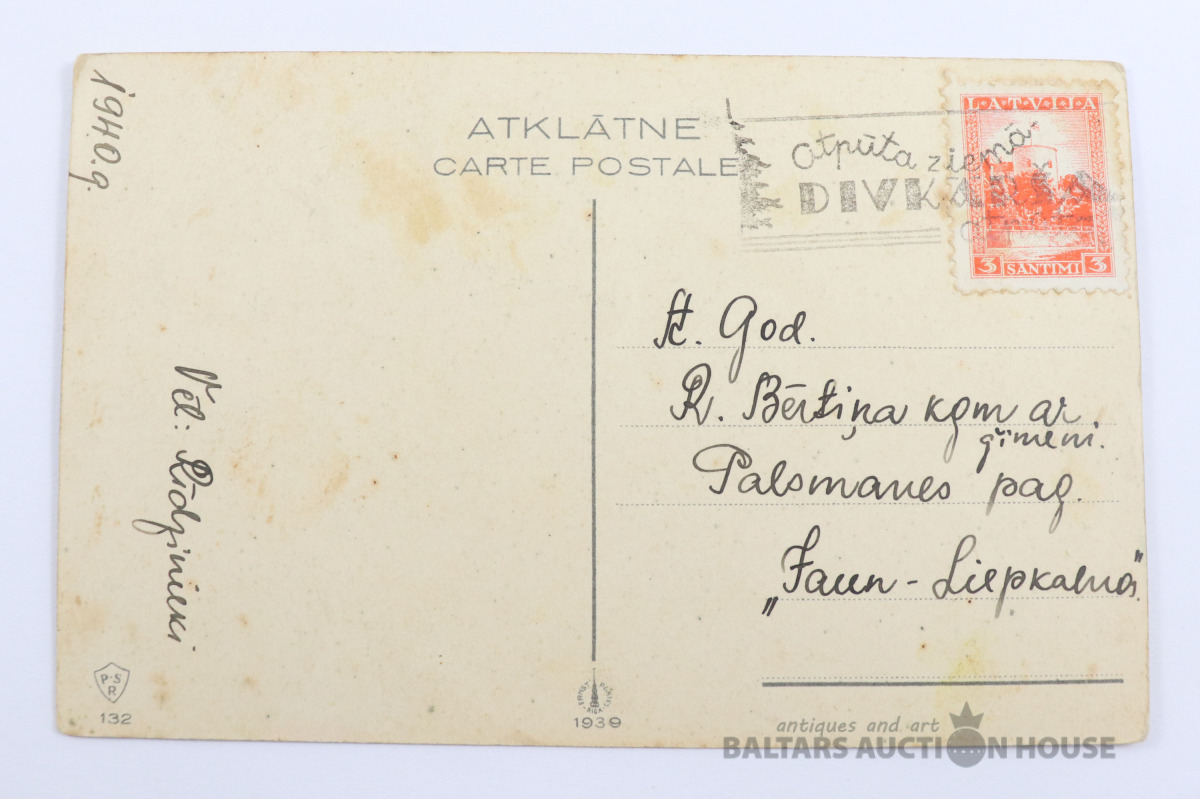 1940.g.
ATKLĀTNE
CARTE POSTALE
Otpūta ziemā
DIVKĀ
LATVIJA
3 SANTIMI 3
God.
R. Bērtiņa kgm ar
ģimeni.
Palsmanes pag.
„Jaun-Liepkalnos"
Vēl: Rīdzinieki
P·S
R
132
1939
antiques and art
BALTARS AUCTION HOUSE